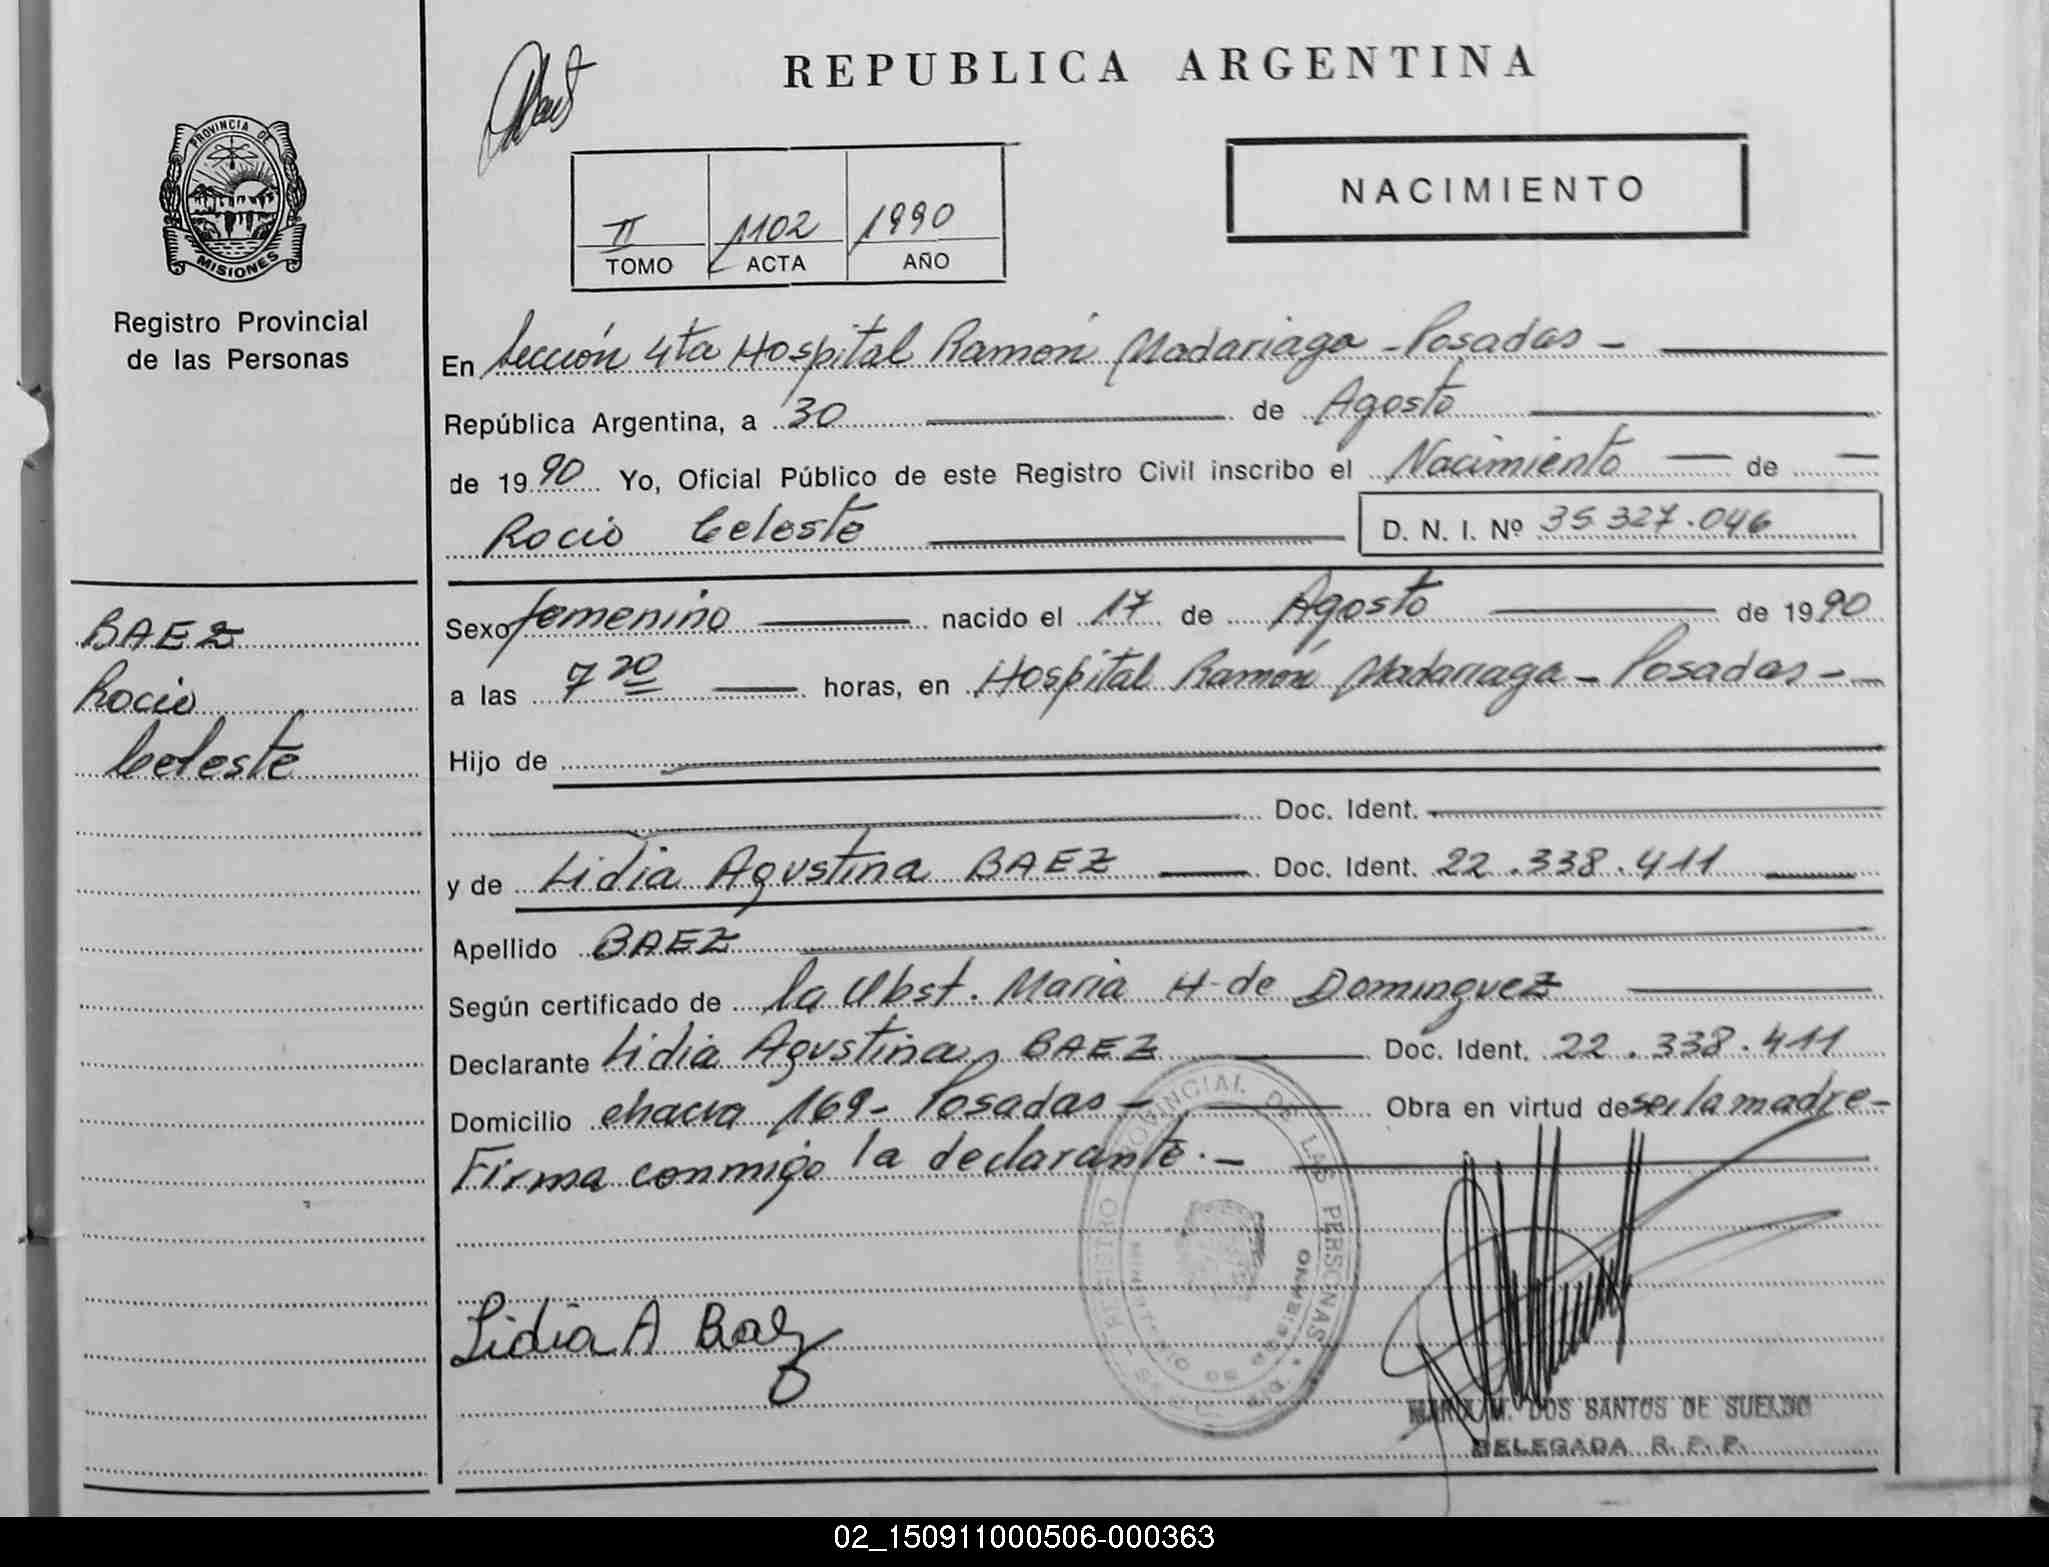 REPUBLICA ARGENTINA
PROVINCIA DE
MISIONES
Registro Provincial
de las Personas
NACIMIENTO
II 1102 1990
TOMO ACTA AÑO
En Sección 4ta Hospital Ramón Madariaga - Posadas -
República Argentina, a 30 de Agosto
de 1990 Yo, Oficial Público de este Registro Civil inscribo el Nacimiento de
Rocio Celeste D. N. I. Nº 35.327.046
BAEZ
Rocio
Celeste
Sexo femenino nacido el 17 de Agosto de 1990
a las 7 20 horas, en Hospital Ramón Madariaga - Posadas -
Hijo de
Doc. Ident.
y de Lidia Agustina BAEZ Doc. Ident. 22.338.411
Apellido BAEZ
Según certificado de la Obst. Maria H de Dominguez
Declarante Lidia Agustina BAEZ Doc. Ident. 22.338.411
Domicilio chacra 169 - Posadas - Obra en virtud de ser la madre -
Firma conmigo la declarante. -
REGISTRO PROVINCIAL DE LAS PERSONAS
Lidia A Baez
MARIA M. DOS SANTOS DE SUELDO
DELEGADA R. P. P.
02_150911000506-000363